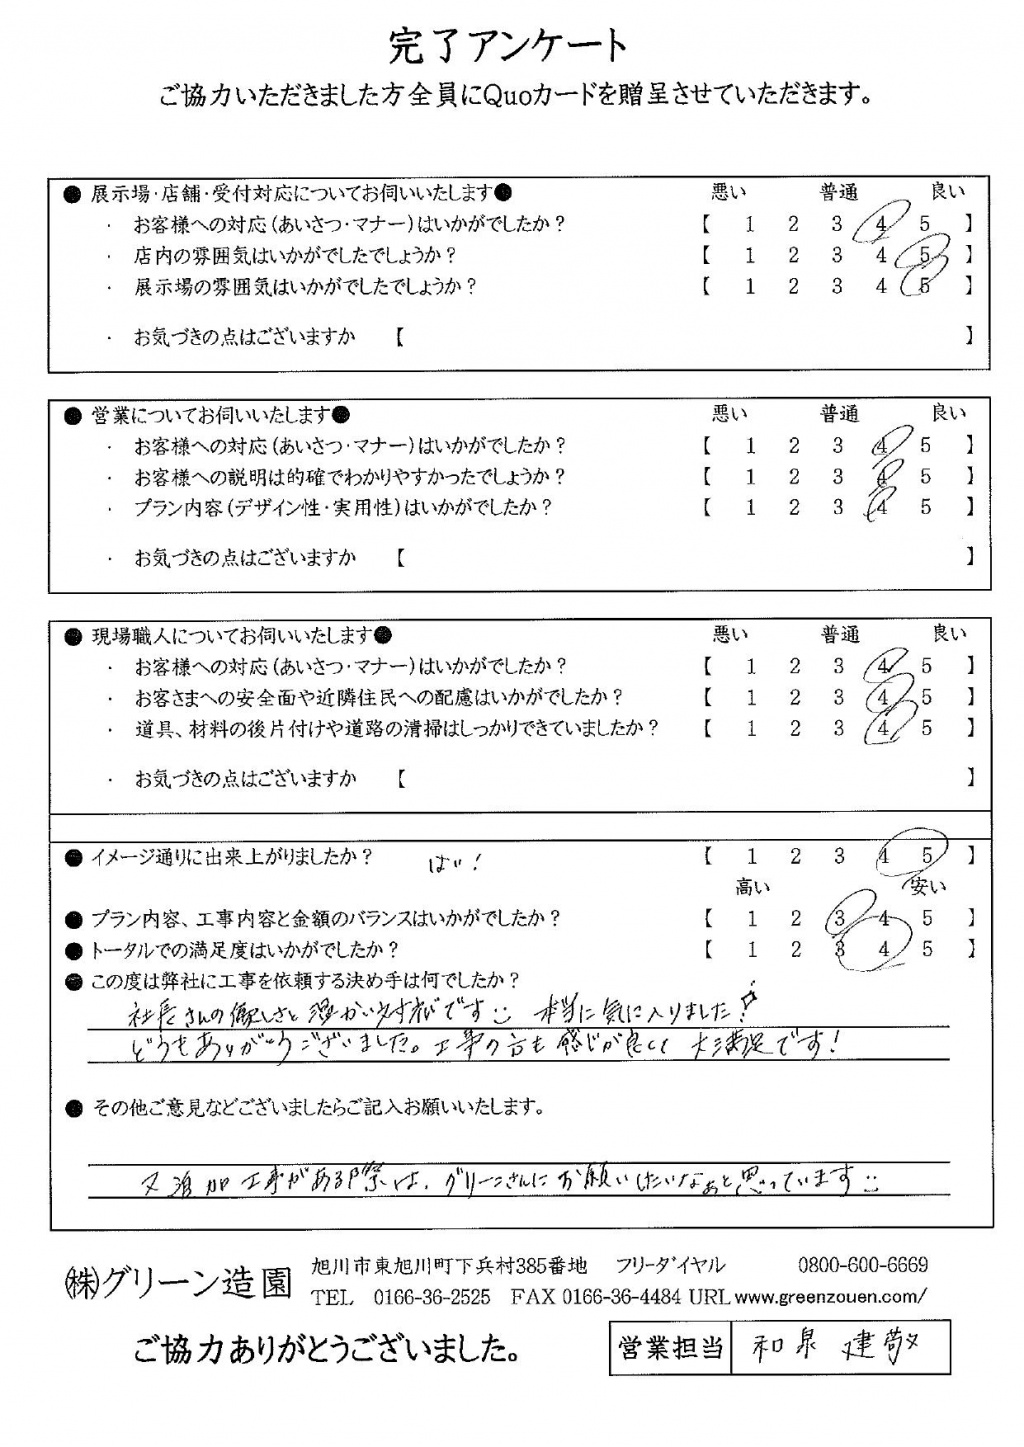 完了アンケート
ご協力いただきました方全員にQuoカードを贈呈させていただきます。
● 展示場・店舗・受付対応についてお伺いいたします● 悪い 普通 良い
・ お客様への対応(あいさつ・マナー)はいかがでしたか? 【 1 2 3 4 5 】
・ 店内の雰囲気はいかがでしたでしょうか? 【 1 2 3 4 5 】
・ 展示場の雰囲気はいかがでしたでしょうか? 【 1 2 3 4 5 】
・ お気づきの点はございますか 【 】
● 営業についてお伺いいたします● 悪い 普通 良い
・ お客様への対応(あいさつ・マナー)はいかがでしたか? 【 1 2 3 4 5 】
・ お客様への説明は的確でわかりやすかったでしょうか? 【 1 2 3 4 5 】
・ プラン内容(デザイン性・実用性)はいかがでしたか? 【 1 2 3 4 5 】
・ お気づきの点はございますか 【 】
● 現場職人についてお伺いいたします● 悪い 普通 良い
・ お客様への対応(あいさつ・マナー)はいかがでしたか? 【 1 2 3 4 5 】
・ お客さまへの安全面や近隣住民への配慮はいかがでしたか? 【 1 2 3 4 5 】
・ 道具、材料の後片付けや道路の清掃はしっかりできていましたか? 【 1 2 3 4 5 】
・ お気づきの点はございますか 【 】
● イメージ通りに出来上がりましたか? はい! 【 1 2 3 4 5 】
高い 安い
● プラン内容、工事内容と金額のバランスはいかがでしたか? 【 1 2 3 4 5 】
● トータルでの満足度はいかがでしたか? 【 1 2 3 4 5 】
● この度は弊社に工事を依頼する決め手は何でしたか?
社長さんの優しさと です 本当に気に入りました!
どうもありがとうございました。工事の方も感じが良くて 大満足です!
● その他ご意見などございましたらご記入お願いいたします。
又追加工事がある際は、グリーンさんにお願いしたいなぁと思っています
㈱グリーン造園 旭川市東旭川町下兵村385番地 フリーダイヤル 0800-600-6669
TEL 0166-36-2525 FAX 0166-36-4484 URL www.greenzouen.com/
ご協力ありがとうございました。 営業担当 和泉 建敬